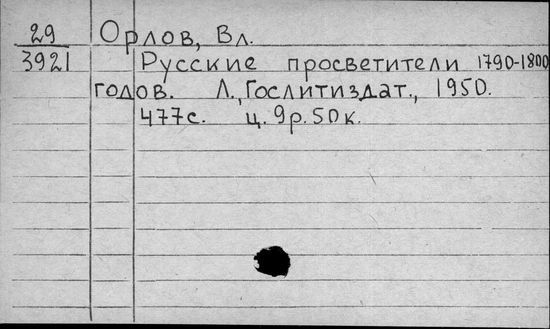 29 Орлов, Вл.
3921 Русские просветители 1790-1800
годов. Л., Гослитиздат., 1950.
477с. ц. 9р. 50к.